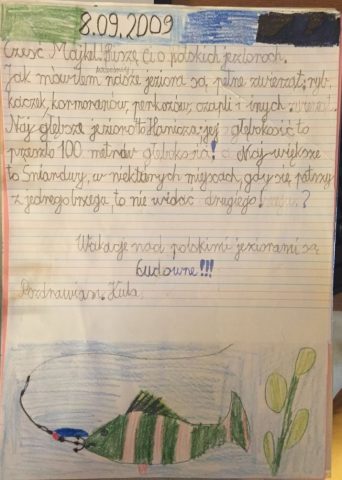 8.09.2009
Cześć Majkel. Piszę Ci o polskich jeziorach.
Jak mówiłem nasze jeziora są pełne zwierząt; ryb,
kaczek, kormoranów, perkozów, czapli i innych
Naj głębsze jezioro to Hańcza; jej głębokość to
przeszło 100 metrów głębokości! a Naj większe
to Śniardwy, w niektórych miejscach, gdy się patrzy
z jednego brzega, to nie widać drugiego! ?
Wakacje nad polskimi jeziorami są
cudowne!!!
Pozdrawiam. Kuba.